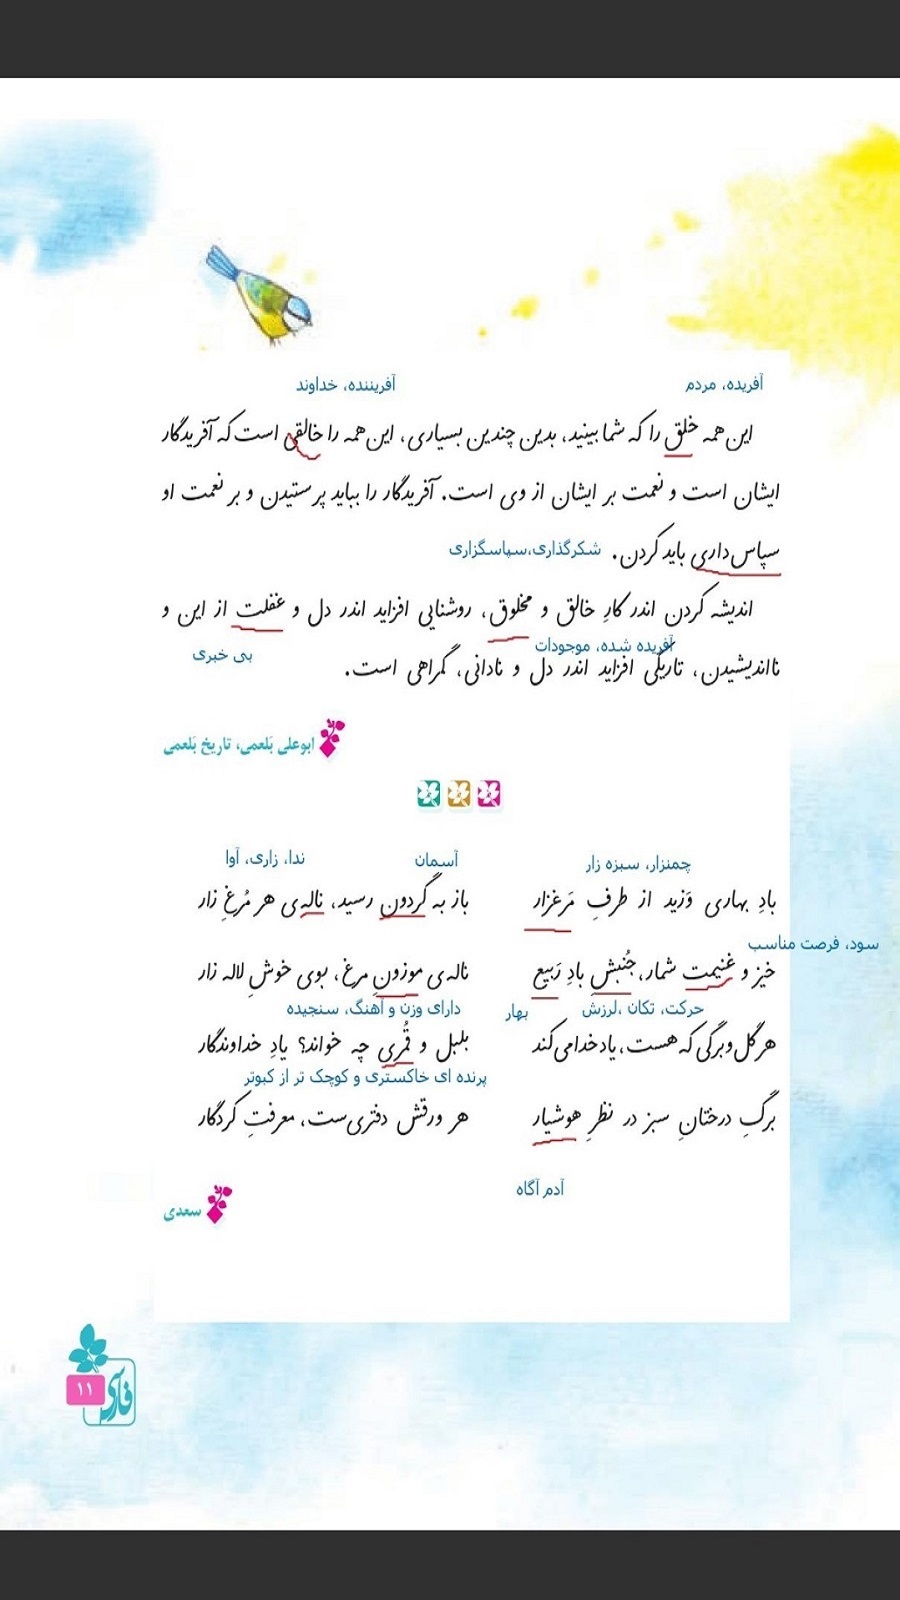 آفریده، مردم
آفریننده، خداوند
این همه خلق را که شما بینید، بدین چندین بسیاری، این همه را خالقی است که آفریدگار
ایشان است و نعمت بر ایشان از وی است. آفریدگار را بباید پرستیدن و بر نعمت او
سپاس‌داری باید کردن. شکرگذاری،سپاسگزاری
اندیشه کردن اندر کارِ خالق و مخلوق، روشنایی افزاید اندر دل و غفلت از این و
آفریده شده، موجودات
بی خبری
نااندیشیدن، تاریکی افزاید اندر دل و نادانی، گمراهی است.
ابوعلی بَلعمی، تاریخ بَلعمی
چمنزار، سبزه زار
آسمان
ندا، زاری، آوا
بادِ بهاری وَزید از طرفِ مَرغزار
باز به گردون رسید، ناله‌ی هر مُرغِ زار
سود، فرصت مناسب
خیز و غنیمت شمار، جُنبشِ بادِ رَبیع
ناله‌ی موزونِ مرغ، بوی خوشِ لاله زار
حرکت، تکان ،لرزش
بهار
دارای وزن و آهنگ، سنجیده
هر گل و برگی که هست، یاد خدا می‌کند
بلبل و قُمری چه خواند؟ یادِ خداوندگار
پرنده ای خاکستری و کوچک تر از کبوتر
برگِ درختانِ سبز در نظرِ هوشیار
هر ورقش دفتری‌ست، معرفتِ کردگار
آدم آگاه
سعدی
فارسی
۱۱